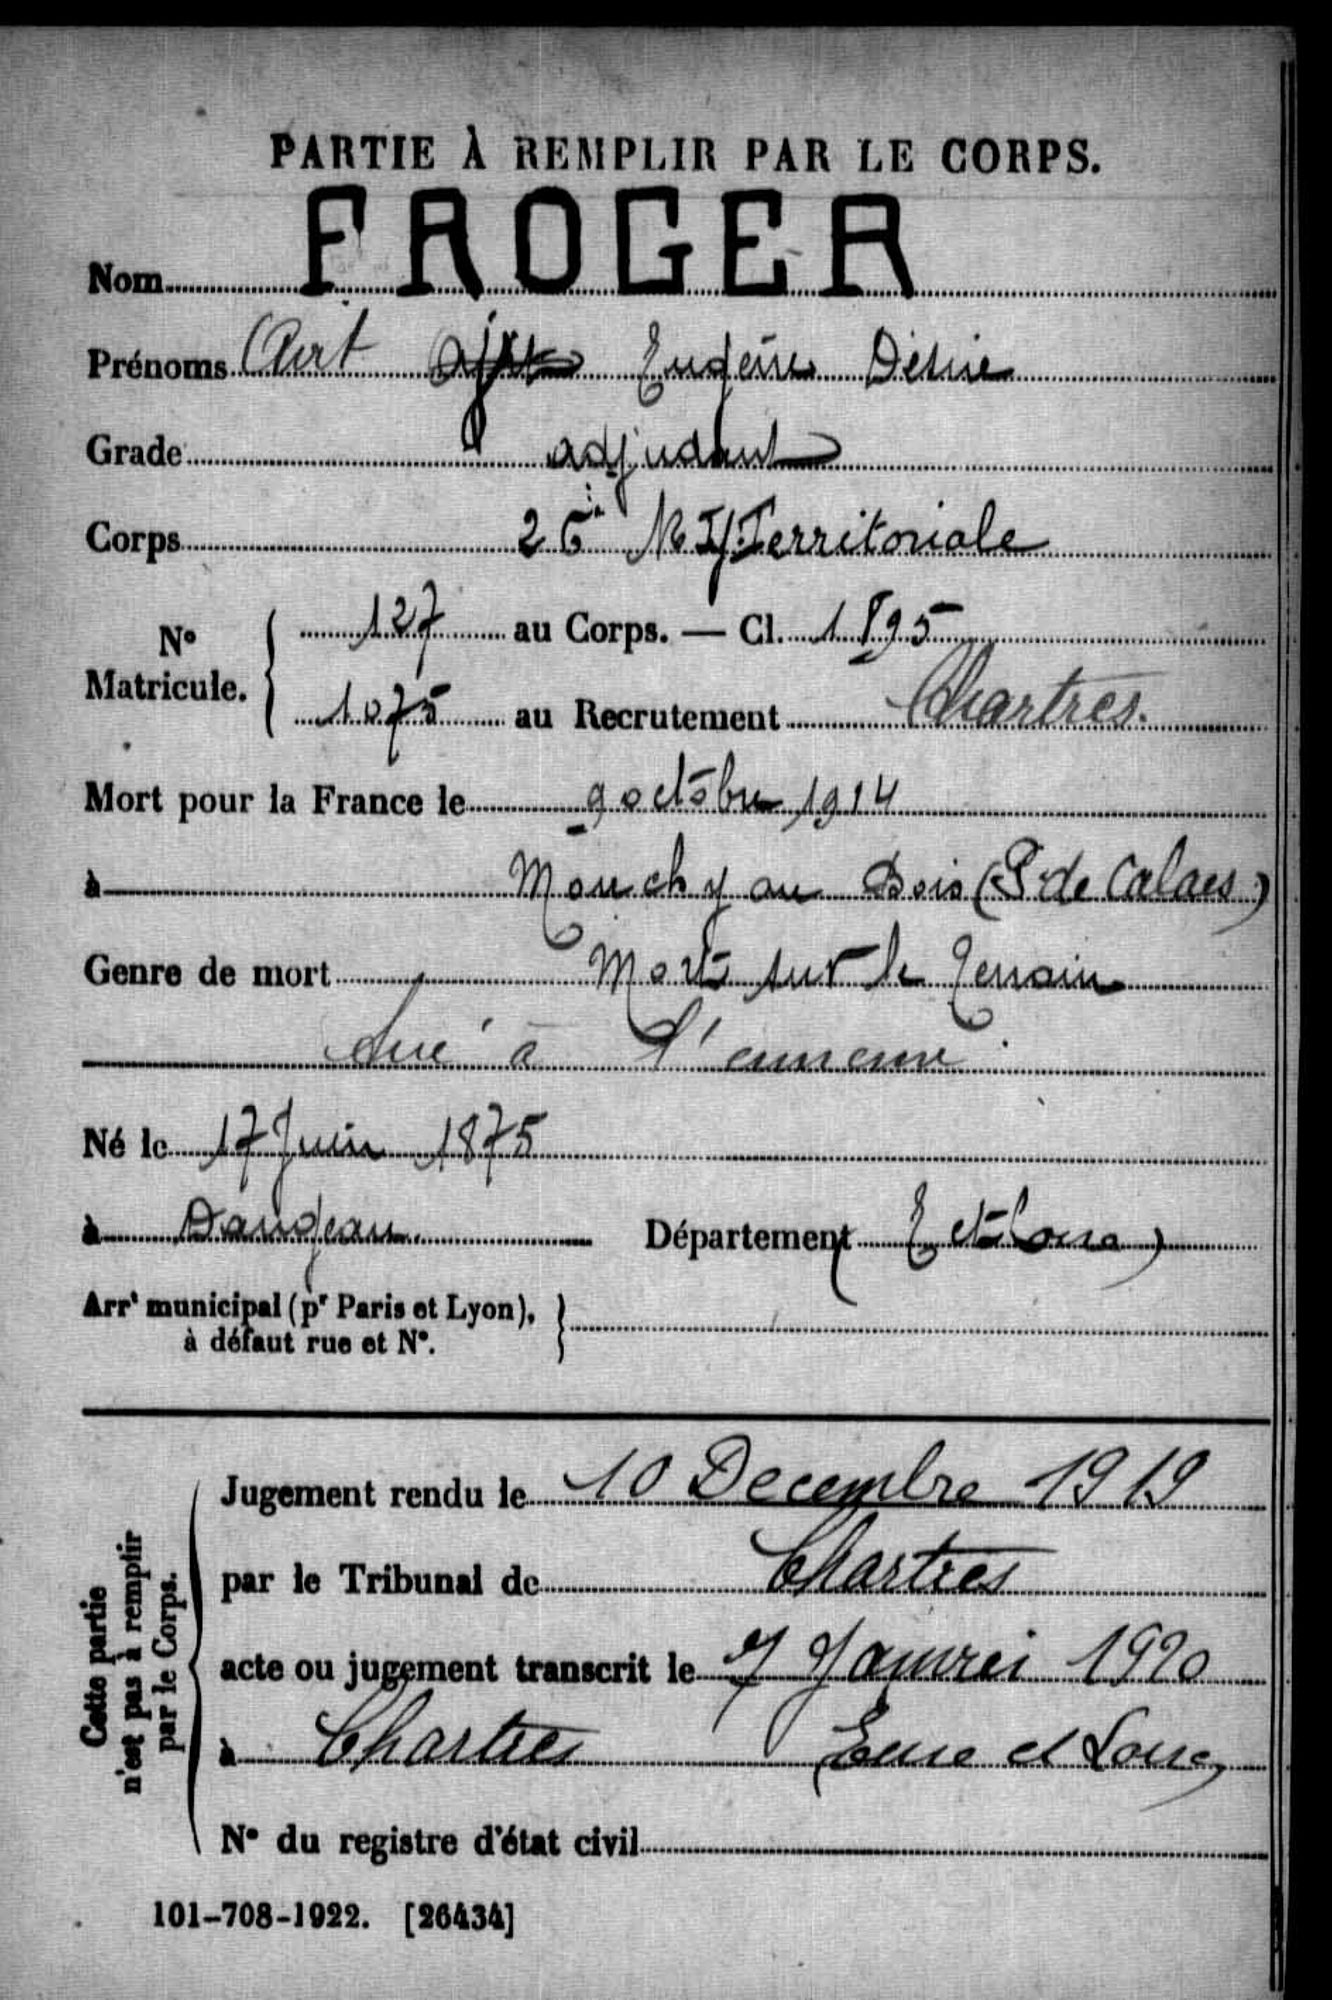 PARTIE À REMPLIR PAR LE CORPS.
Nom FROGER
Prénoms Eugène Désiré
Grade adjudant
Corps 26e R I Territoriale
No Matricule. 127 au Corps. — Cl. 1895
1075 au Recrutement Chartres.
Mort pour la France le 9 octobre 1914
à Monchy au Bois (P de Calais)
Genre de mort Mort sur le terrain
tué à l'ennemi
Né le 17 Juin 1875
à Dangeau Département (E et Loire)
Arrt municipal (pr Paris et Lyon),
à défaut rue et No.
Cette partie
n'est pas à remplir
par le Corps.
Jugement rendu le 10 Decembre 1919
par le Tribunal de Chartres
acte ou jugement transcrit le 7 Janvier 1920
à Chartres (Eure et Loire)
No du registre d'état civil
101-708-1922. [26434]